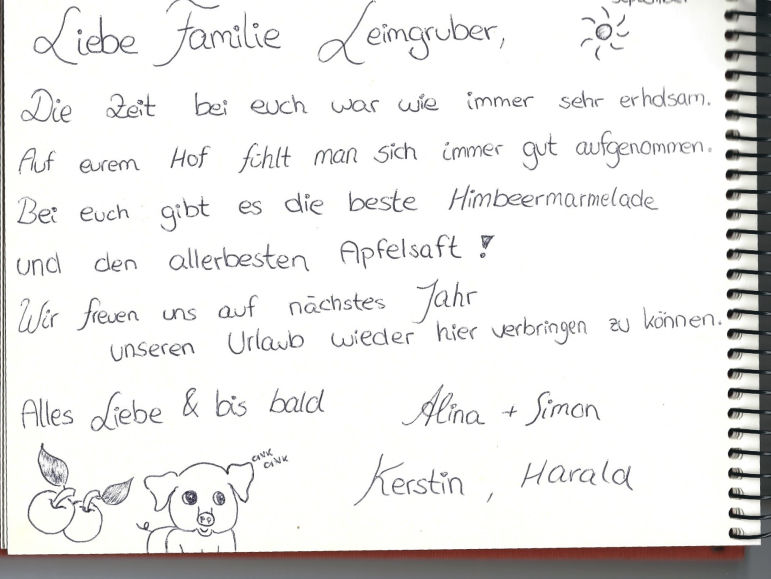 Liebe Familie Leimgruber,
Die Zeit bei euch war wie immer sehr erholsam.
Auf eurem Hof fühlt man sich immer gut aufgenommen.
Bei euch gibt es die beste Himbeermarmelade
und den allerbesten Apfelsaft!
Wir freuen uns auf nächstes Jahr
unseren Urlaub wieder hier verbringen zu können.
Alles Liebe & bis bald
Alina + Simon
Kerstin, Harald